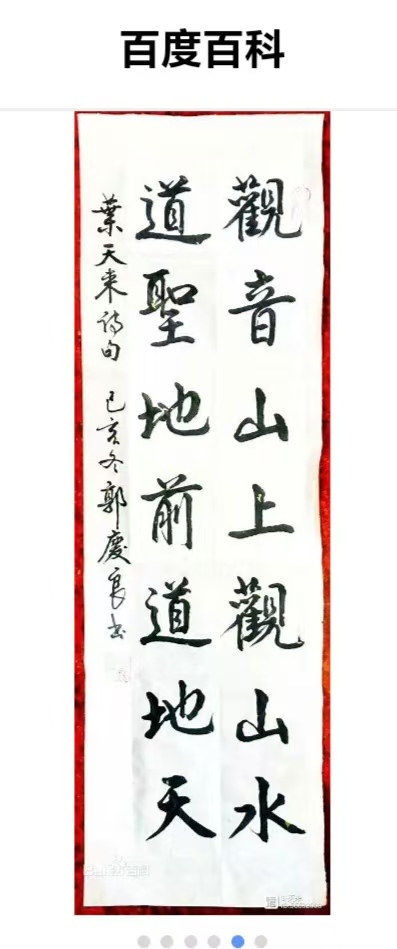 百度百科
觀音山上觀山水
道聖地前道地天
葉天来诗句 己亥冬郭慶良书